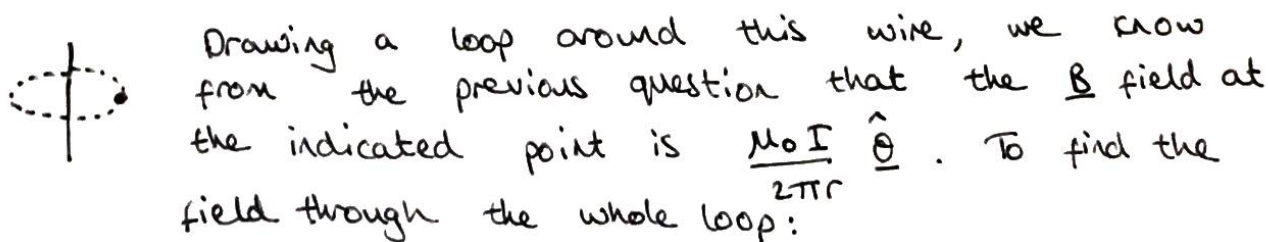 Drawing a loop around this wire, we know
from the previous question that the B field at
the indicated point is μ₀I/2πr θ̂. To find the
field through the whole loop: